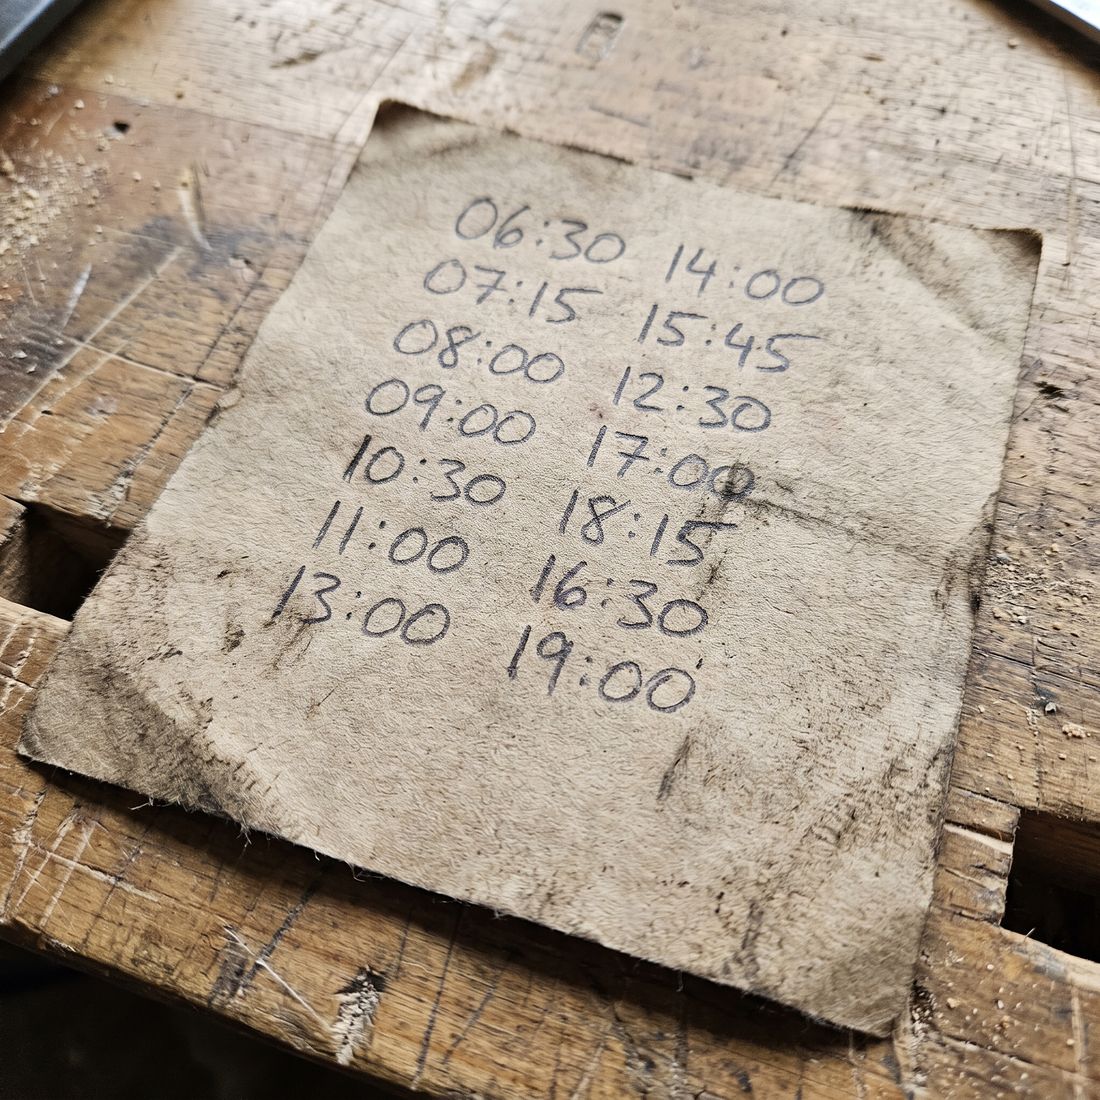 06:30 14:00
07:15 15:45
08:00 12:30
09:00 17:00
10:30 18:15
11:00 16:30
13:00 19:00